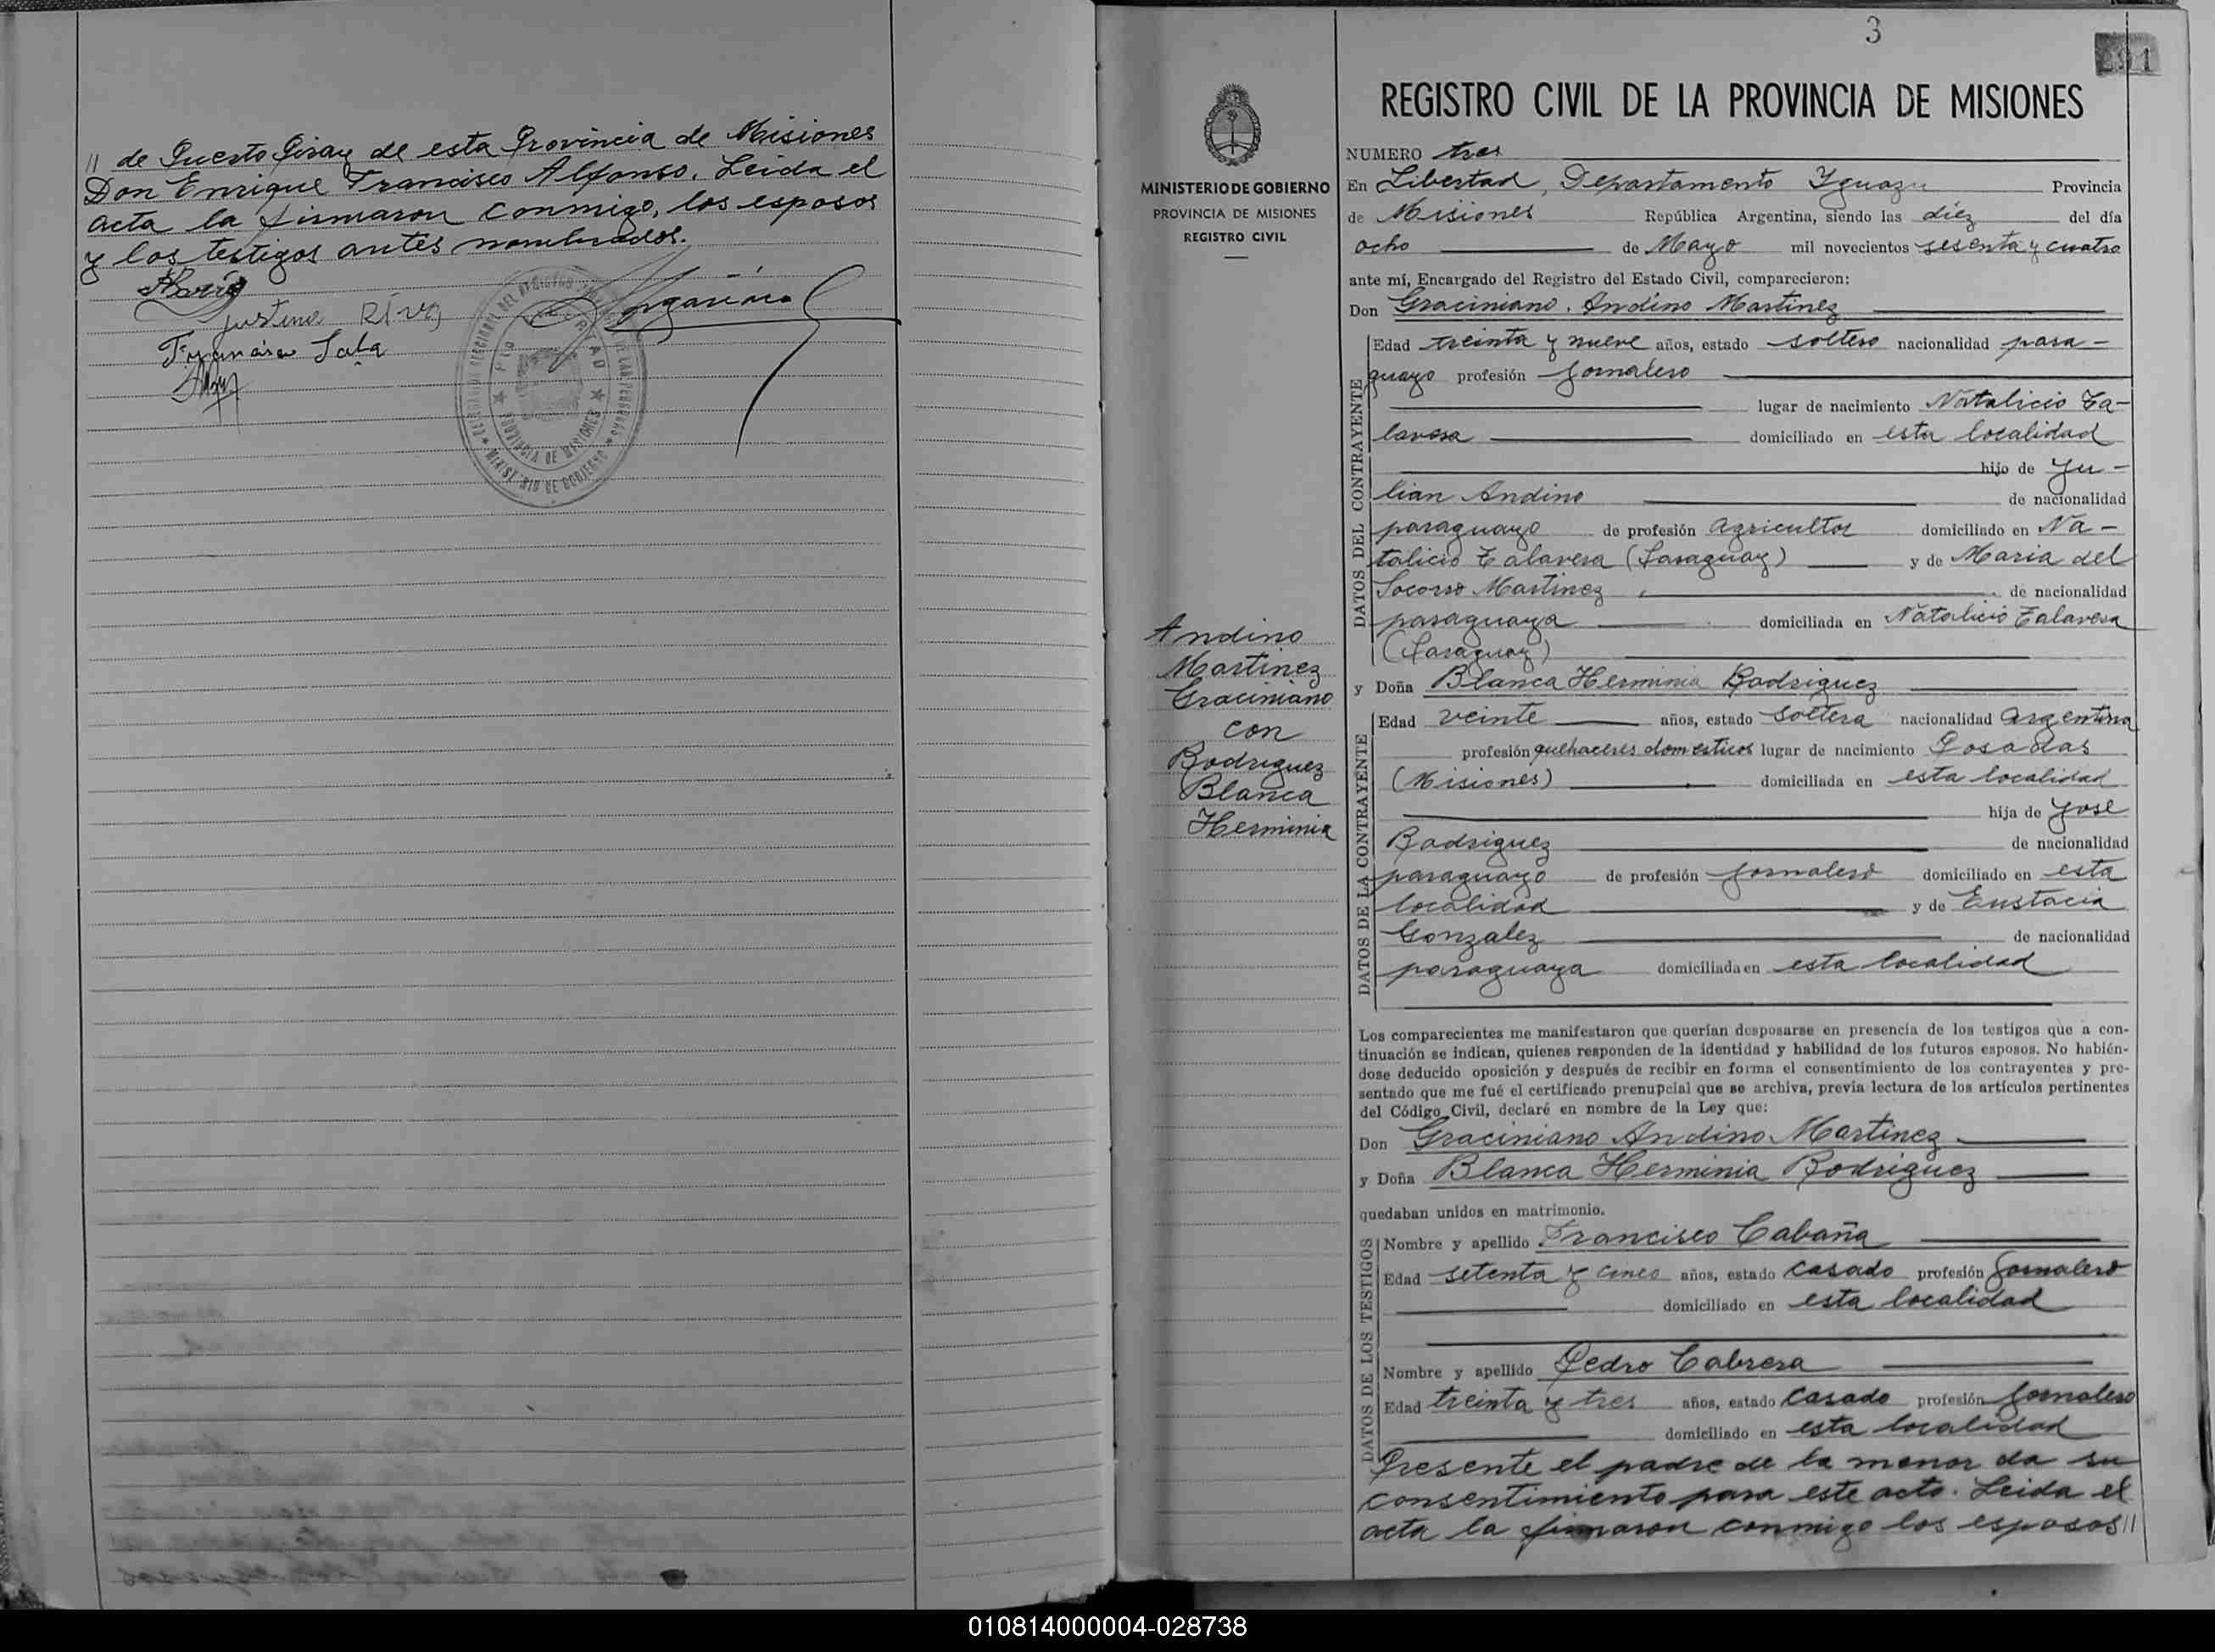 // de Puerto Piray de esta Provincia de Misiones
Don Enrique Francisco Alfonso. Leida el
acta la firmaron conmigo, los esposos
y los testigos antes nombrados.
MINISTERIO DE GOBIERNO
PROVINCIA DE MISIONES
3
REGISTRO CIVIL DE LA PROVINCIA DE MISIONES
MINISTERIO DE GOBIERNO
PROVINCIA DE MISIONES
REGISTRO CIVIL
Andino
Martinez
Graciniano
con
Rodriguez
Blanca
Herminia
NUMERO tres
En Libertad, Departamento Yguazu Provincia
de Misiones República Argentina, siendo las diez del día
ocho de Mayo mil novecientos sesenta y cuatro
ante mí, Encargado del Registro del Estado Civil, comparecieron:
Don Graciniano Andino Martinez
DATOS DEL CONTRAYENTE
Edad treinta y nueve años, estado soltero nacionalidad para-
guayo profesión jornalero
lugar de nacimiento Natalicio Ta-
lavera domiciliado en esta localidad
hijo de Ju-
lian Andino de nacionalidad
paraguayo de profesión agricultor domiciliado en Na-
talicio Talavera (Paraguay) y de Maria del
Socorro Martinez de nacionalidad
paraguaya domiciliada en Natalicio Talavera
(Paraguay)
y Doña Blanca Herminia Rodriguez
DATOS DE LA CONTRAYENTE
Edad veinte años, estado soltera nacionalidad argentina
profesión quehaceres domesticos lugar de nacimiento Posadas
(Misiones) domiciliada en esta localidad
hija de José
Rodriguez de nacionalidad
paraguayo de profesión jornalero domiciliado en esta
localidad y de Eustacia
Gonzalez de nacionalidad
paraguaya domiciliada en esta localidad
Los comparecientes me manifestaron que querían desposarse en presencia de los testigos que a con-
tinuación se indican, quienes responden de la identidad y habilidad de los futuros esposos. No habién-
dose deducido oposición y después de recibir en forma el consentimiento de los contrayentes y pre-
sentado que me fué el certificado prenupcial que se archiva, previa lectura de los artículos pertinentes
del Código Civil, declaré en nombre de la Ley que:
Don Graciniano Andino Martinez
y Doña Blanca Herminia Rodriguez
quedaban unidos en matrimonio.
DATOS DE LOS TESTIGOS
Nombre y apellido Francisco Cabaña
Edad setenta y cinco años, estado casado profesión jornalero
domiciliado en esta localidad
Nombre y apellido Pedro Cabrera
Edad treinta y tres años, estado casado profesión jornalero
domiciliado en esta localidad
Presente el padre de la menor da su
consentimiento para este acto. Leida el
acta la firmaron conmigo los esposos //
010814000004-028738